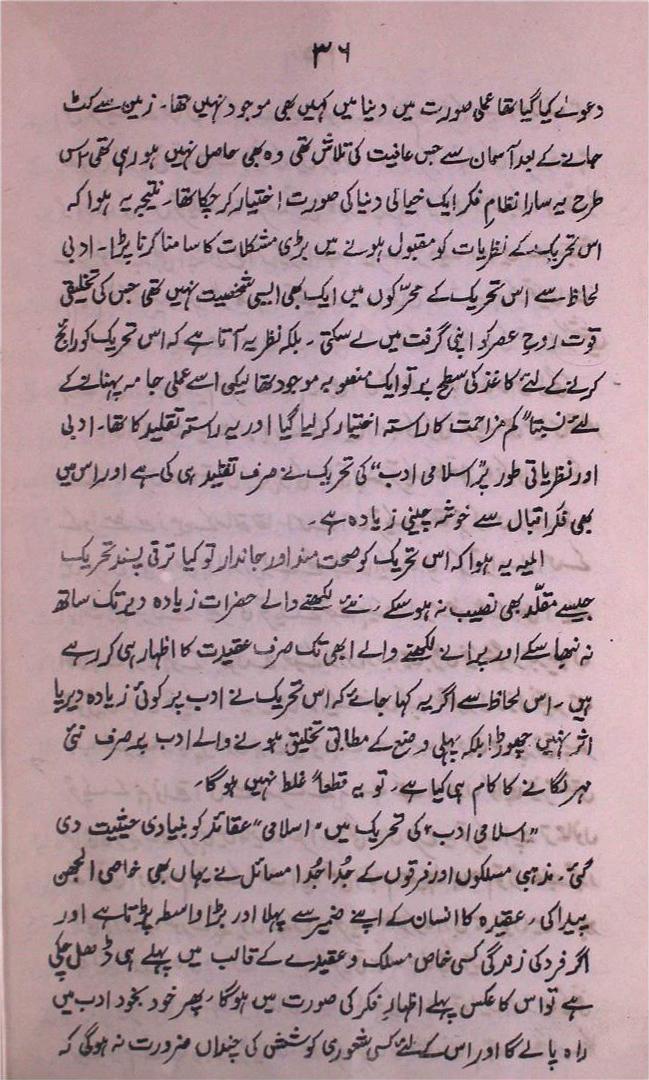 ۳۶
دعوےٰ کیا گیا تھا عملی صورت میں دنیا میں کہیں بھی موجود نہیں تھا۔ زمین سے کٹ
جانے کے بعد آسمان سے جس عافیت کی تلاش تھی وہ بھی حاصل نہیں ہو رہی تھی اس
طرح یہ سارا نظامِ فکر ایک خیالی دنیا کی صورت اختیار کر چکا تھا۔ نتیجہ یہ ہوا کہ
اس تحریک کے نظریات کو مقبول ہونے میں بڑی مشکلات کا سامنا کرنا پڑا۔ ادبی
لحاظ سے اس تحریک کے محرکوں میں ایک بھی ایسی شخصیت نہیں تھی جس کی تخلیقی
قوت روح عصر کو اپنی گرفت میں لے سکتی۔ بلکہ نظر یہ آتا ہے کہ اس تحریک کو رائج
کرنے کے لئے کاغذ کی سطح پر تو ایک منصوبہ موجود تھا لیکن اسے عملی جامہ پہنانے کے
لئے نسبتاً کم مزاحمت کا راستہ اختیار کر لیا گیا اور یہ راستہ تقلید کا تھا۔ ادبی
اور نظریاتی طور پر "اسلامی ادب" کی تحریک نے صرف تقلید ہی کی ہے اور اس میں
بھی فکر اقبال سے خوشہ چینی زیادہ ہے۔
المیہ یہ ہوا کہ اس تحریک کو صحت مند اور جاندار تو کیا ترقی پسند تحریک
جیسے مقلّد بھی نصیب نہ ہو سکے۔ نئے لکھنے والے حضرات زیادہ دیر تک ساتھ
نہ نبھا سکے اور پرانے لکھنے والے ابھی تک صرف عقیدت کا اظہار ہی کر رہے
ہیں۔ اس لحاظ سے اگر یہ کہا جائے کہ اس تحریک نے ادب پر کوئی زیادہ دیرپا
اثر نہیں چھوڑا بلکہ پہلی وضع کے مطابق تخلیق ہونے والے ادب پر صرف نئی
مہر لگانے کا کام ہی کیا ہے۔ تو یہ قطعاً غلط نہیں ہوگا۔
"اسلامی ادب" کی تحریک میں "اسلامی" عقائد کو بنیادی حیثیت دی
گئی۔ مذہبی مسلکوں اور فرقوں کے جُدا جُدا مسائل نے یہاں بھی خاصی الجھن
پیدا کی۔ عقیدہ کا انسان کے اپنے ضمیر سے پہلا اور بڑا واسطہ پڑتا ہے اور
اگر فرد کی زندگی کسی خاص مسلک و عقیدے کے قالب میں پہلے ہی ڈھل چکی
ہے تو اس کا عکس پہلے اظہارِ فکر کی صورت میں ہوگا۔ پھر خود بخود ادب میں
راہ پالے گا اور اس کے لئے کسی شعوری کوشش کی چنداں ضرورت نہ ہوگی کہ